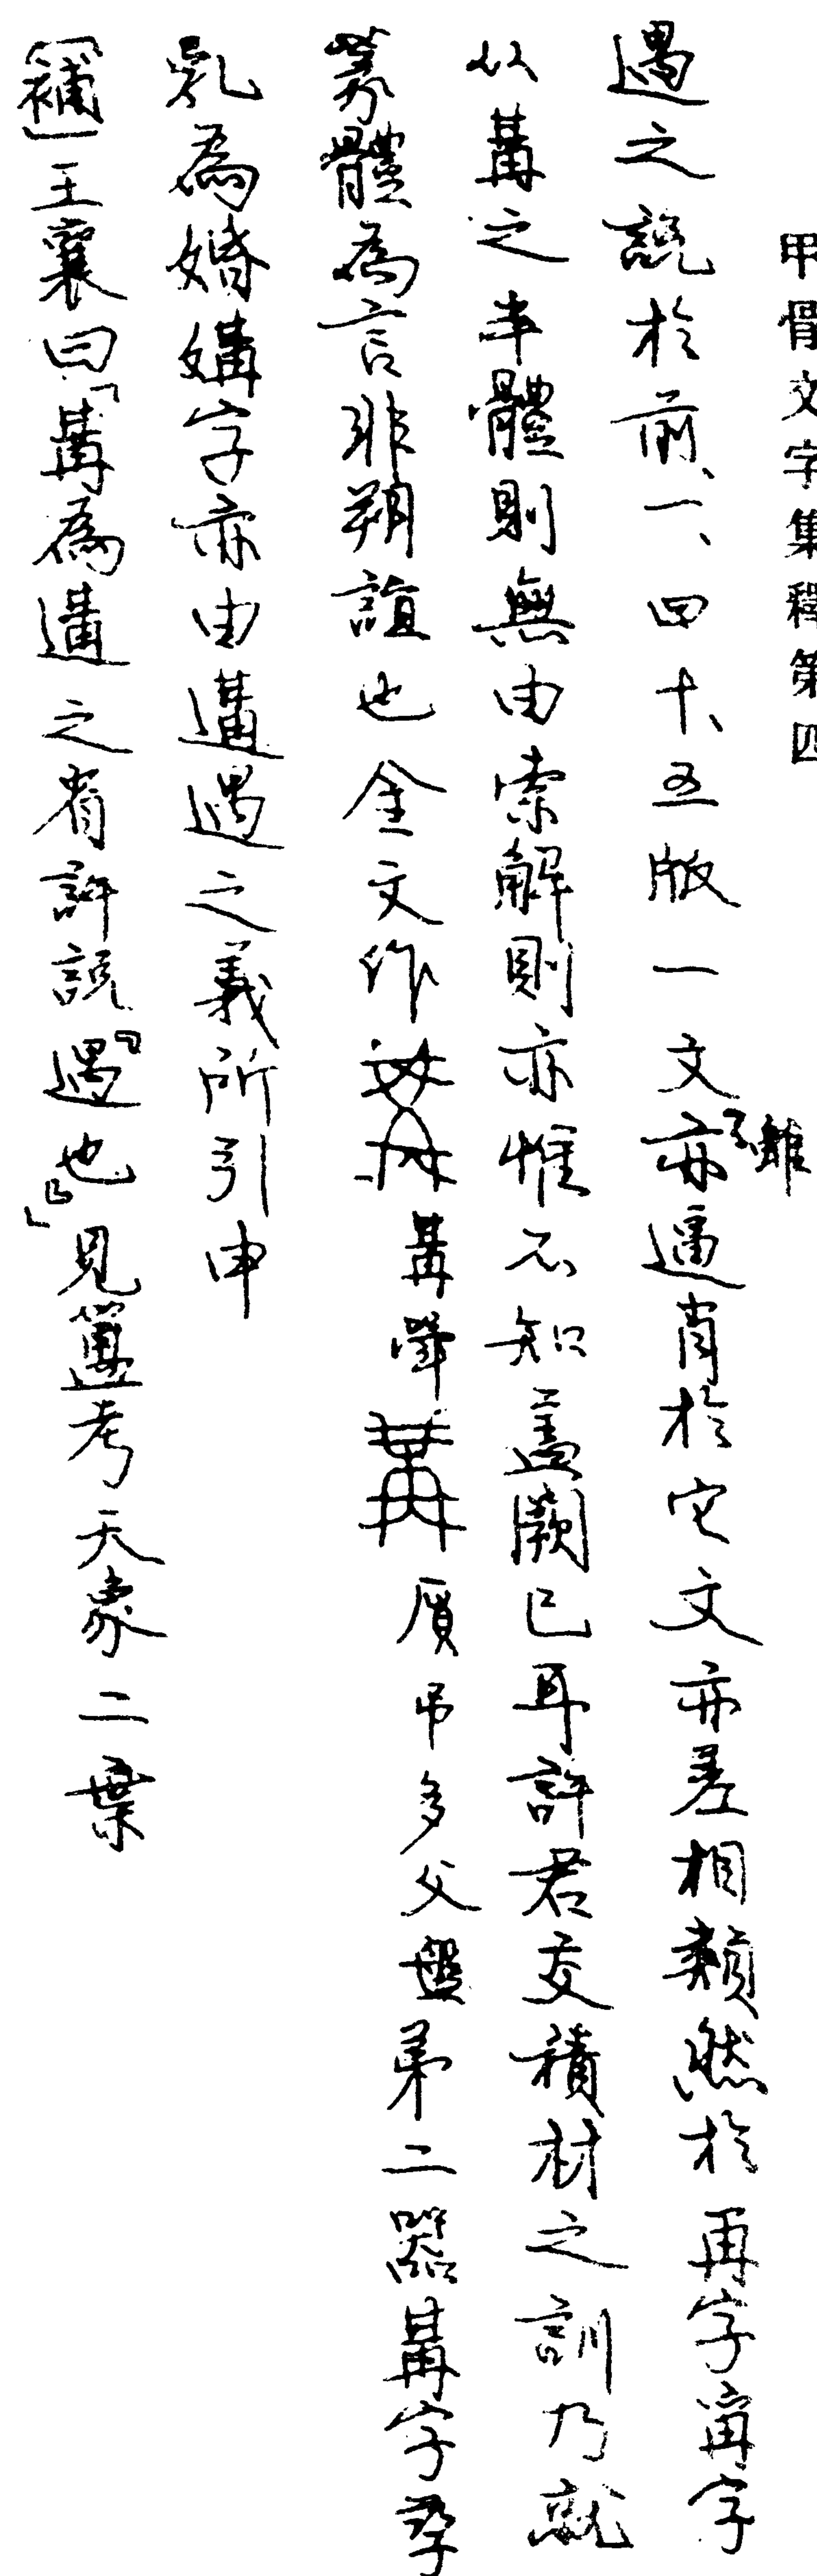 甲骨文字集釋第四
遇之說於前、一、四十、五版一文雖亦逼肖於它文亦差相類然於再字冓字
从冓之半體則無由索解則亦惟不知蓋闕已耳許君交積材之訓乃就
篆體為言非朔誼也金文作冓斝屓弔多父盤第二器冓字孳
乳為婚媾字亦由遘遇之義所引申
〔補〕王襄曰「冓為遘之省許說『遇也』」見簠考天象二葉